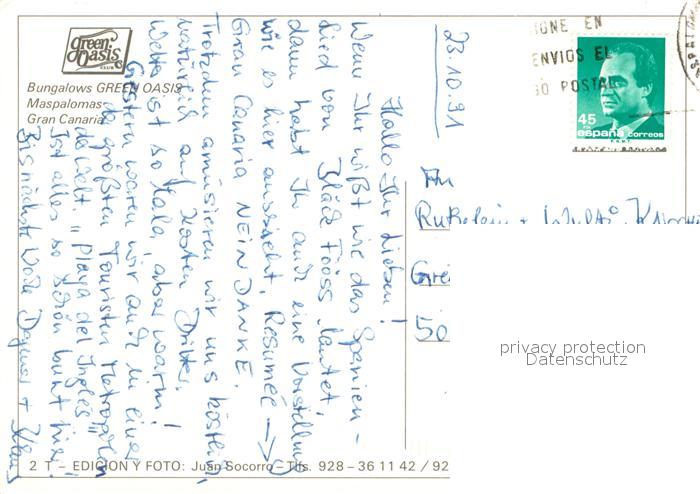 Green Oasis
CLUB
Bungalows GREEN OASIS
Maspalomas
Gran Canaria
23.10.91
Hallo Ihr Lieben!
Wenn Ihr wißt wie das Spanien-
Lied von Bläck Fööss lautet,
dann habt Ihr auch eine Vorstellung
wie es hier aussieht. Resumée →
Gran Canaria NEIN DANKE.
Trotzdem amüsieren wir uns köstlich,
natürlich auf Kosten Dritter.
Wetter ist so lala, aber warm!
Gestern waren wir auch in einer
der größten Touristen Metropolen
der Welt. "Playa del Inglés"
Ist alles so schön bunt hier!
Bis nächste Woche Dagmar + Klaus
IGNE EN
ENVIOS EL
GO POSTAL
45
PTA
españa correos
F.N.M.T.
An
+
50
privacy protection
Datenschutz
2 T – EDICION Y FOTO: Juan Socorro – Tlfs. 928 – 36 11 42 / 92